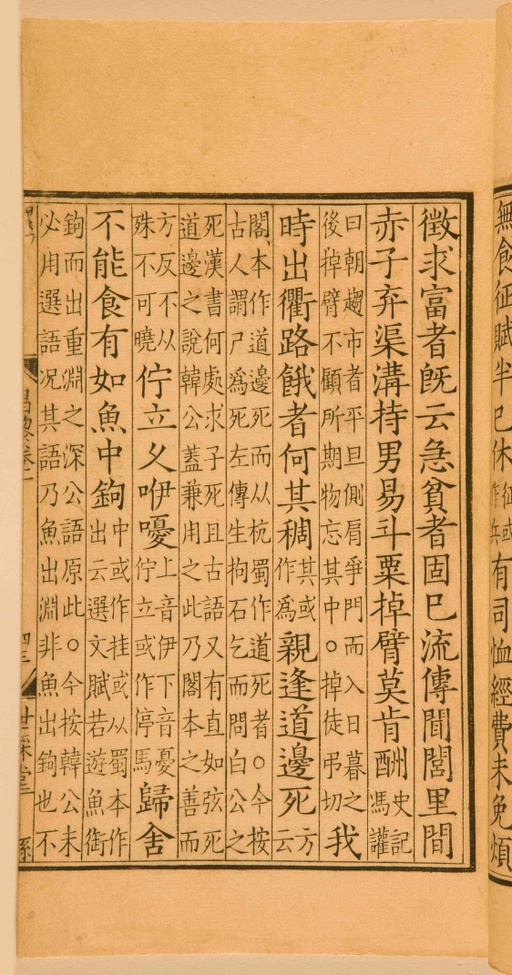 無食征賦半已休征或作兵有司恤經費未免煩
徵求富者旣云急貧者固已流傳聞閭里間
赤子弃渠溝持男易斗粟掉臂莫肯酬史記馮驩
曰朝趨市者平旦側肩爭門而入日暮之
後掉臂不顧所期物忘其中○掉徒弔切我
時出衢路餓者何其稠其或作爲親逢道邊死方云
閣本作道邊死而从杭蜀作道死者○今按
古人謂尸爲死左傳生拘石乞而問白公之
死漢書何處求子死且古語又有直如弦死
道邊之說韓公蓋兼用之此乃閣本之善而
方反不从
殊不可曉佇立久咿嚘上音伊下音憂佇立或作停馬歸舍
不能食有如魚中鉤中或作挂或从蜀本作出云選文賦若遊魚銜
鉤而出重淵之深公語原此○今按韓公未
必用選語况其語乃魚出淵非魚出鉤也不
昌黎卷一
世綵堂
孫